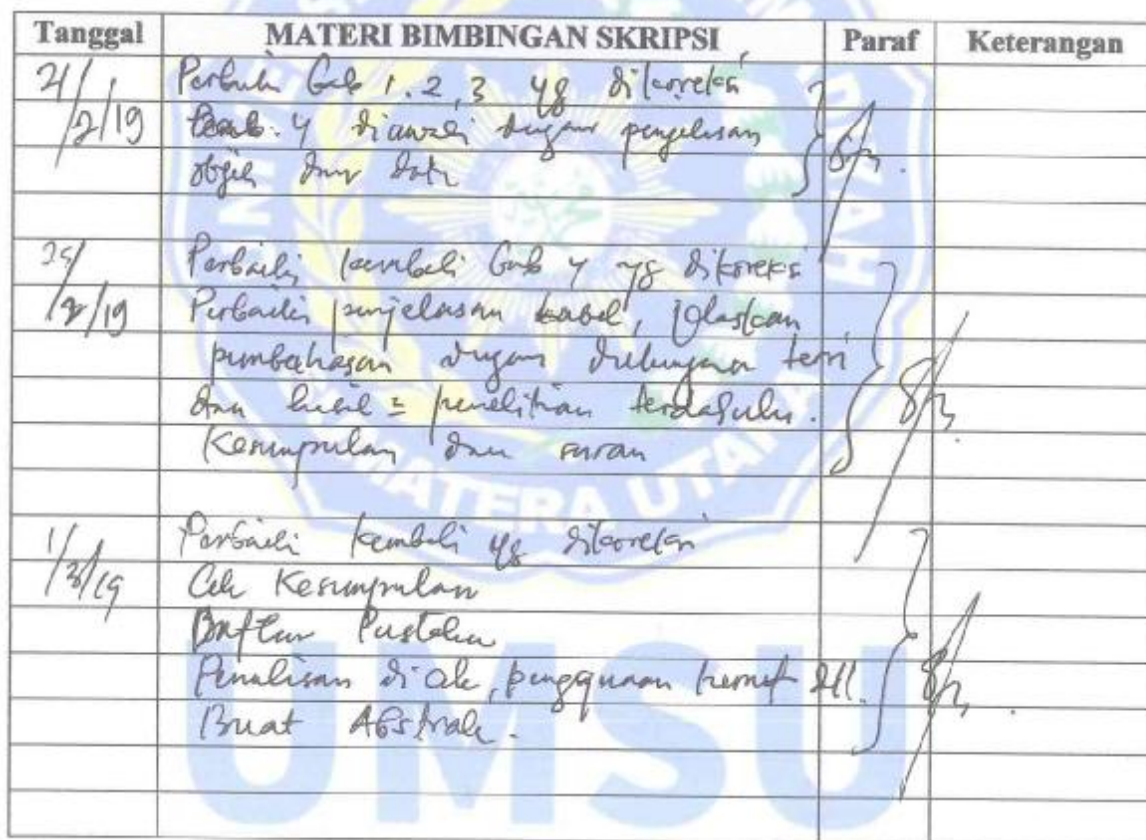 Tanggal MATERI BIMBINGAN SKRIPSI Paraf Keterangan
21/2/19 Perbaiki bab 1, 2, 3 yg dikoreksi
Bab 4 diawali dengan penjelasan
objek dan data
25/2/19 Perbaiki kembali bab 4 yg dikoreksi
Perbaiki penjelasan tabel, jelaskan
pembahasan dengan dukungan teori
dan hasil = penelitian terdahulu.
Kesimpulan dan saran
1/3/19 Perbaiki kembali yg dikoreksi
Cek Kesimpulan
Daftar Pustaka
Penulisan di cek, penggunaan dll.
Buat Abstrak.
SUMATERA UTARA
UMSU